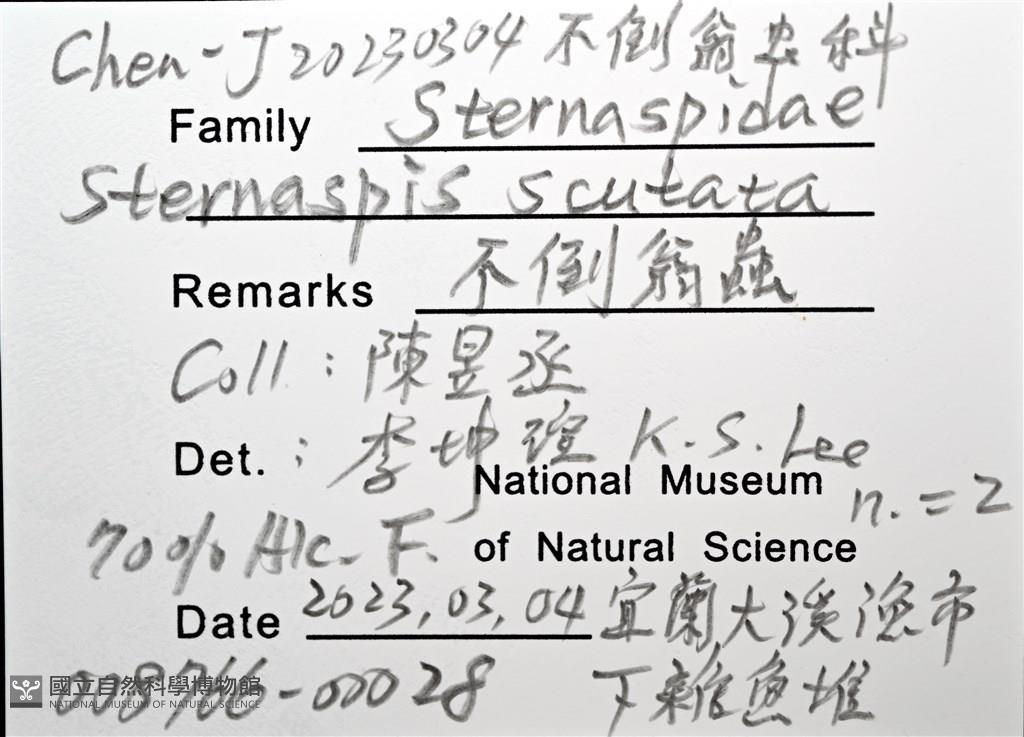 Chen-J20230304 不倒翁虫科
Family Sternaspidae
Sternaspis scutata
Remarks 不倒翁蟲
Coll : 陳昱丞
Det. : 李坤瑄 K.S. Lee
National Museum
n. = 2
70% Alc. F. of Natural Science
Date 2023.03.04 宜蘭大溪漁市
008766-00028 下雜魚堆
國立自然科學博物館
NATIONAL MUSEUM OF NATURAL SCIENCE